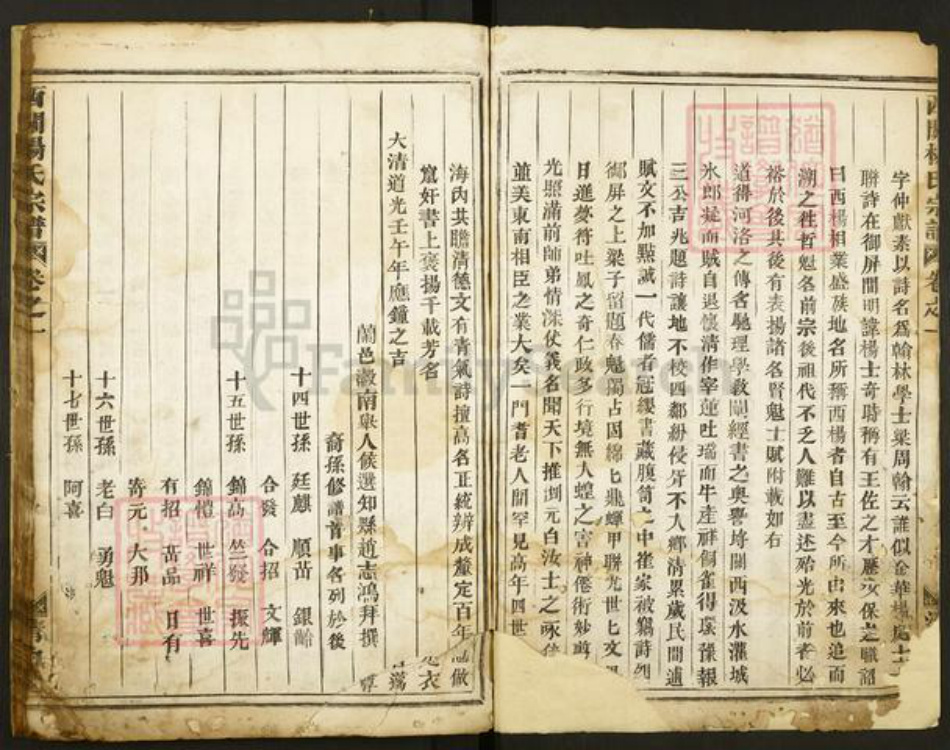 字仲獻素以詩名爲翰林學士梁周翰云誰似金華楊處士
聯詩在御屏間明諱楊士奇時稱有王佐之才歷 保之職詔
曰西楊相業盛族地名所稱西楊者自古至今所由來也追而
溯之徃哲魁名前宗後祖代不乏人難以盡述殆光於前者必
裕於後其後有表揚諸名賢魁士賦附載如右
道得河洛之傳名馳理學敎闡經書之奧譽 關西汲水灌城
氷郎 而賊自退懷清作宰蓮吐瑞而牛產祥銅雀得 豫報
三公吉兆題詩讓地不校四鄰紛侵牙不入鄉清累歲民間逋
賦文不加點誠一代儒者冠纓書藏腹笥 中崔家被竊詩列
御屏之上梁子留題春魁獨占固綿七 蟬甲聯 世七文
日進夢符吐鳳之奇仁政多行境無大蝗之害神僊術妙
光照滿前師弟情深仗義名聞天下推 元白汝士之
並美東南相臣之業大矣一門耆老人間罕見高年四世
海內共瞻清德文有青氣詩擅高名正統辨成釐定百年
竄奸書上褒揚千載芳名 衣
大清道光壬午年應鐘之吉
蘭邑 南舉人候選知縣趙志鴻拜撰
裔孫修譜首事名列於後
十四世孫 廷麒 順苗 銀齡
合發 合招 文輝
十五世孫 錦高 竺發 振先
錦禮 世祥 世喜
有招 苗品 日有
寄元 大那
十六世孫 老白 勇魁
十七世孫 阿喜
西關楊氏宗譜 卷之一
FamilySearch